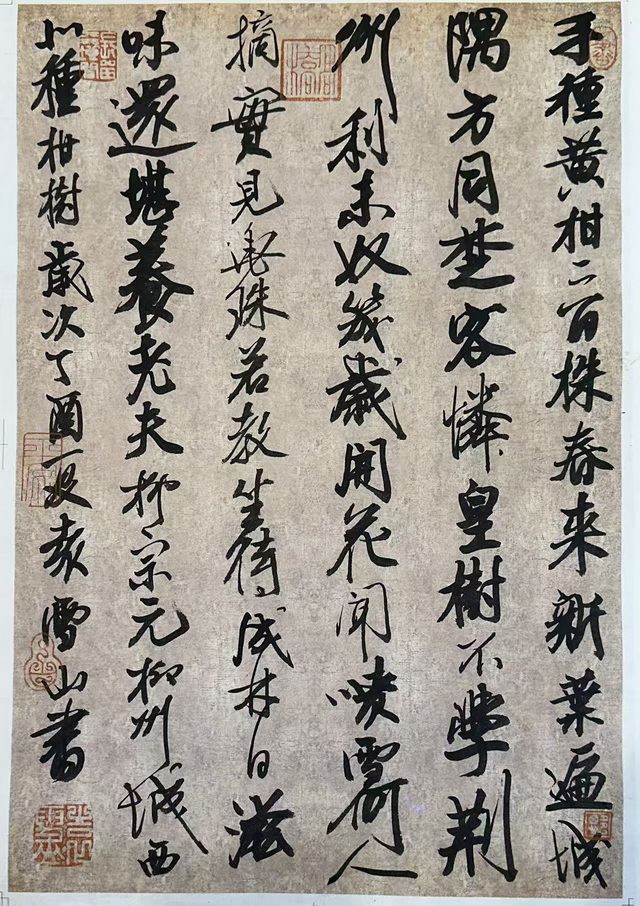 手種黄柑二百株春来新葉遍城
隅方同楚客憐皇樹不學荆
州利木奴幾歲開花聞噴雪何人
摘實見垂珠若教坐待成林日滋
味還堪養老夫柳宗元柳州城西
北種柑樹歲次丁酉夏亥雪山書